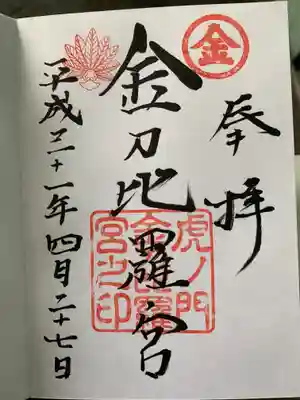 奉拝
金
金刀比羅宮
虎ノ門
金刀比羅
宮之印
平成三十一年四月二十七日